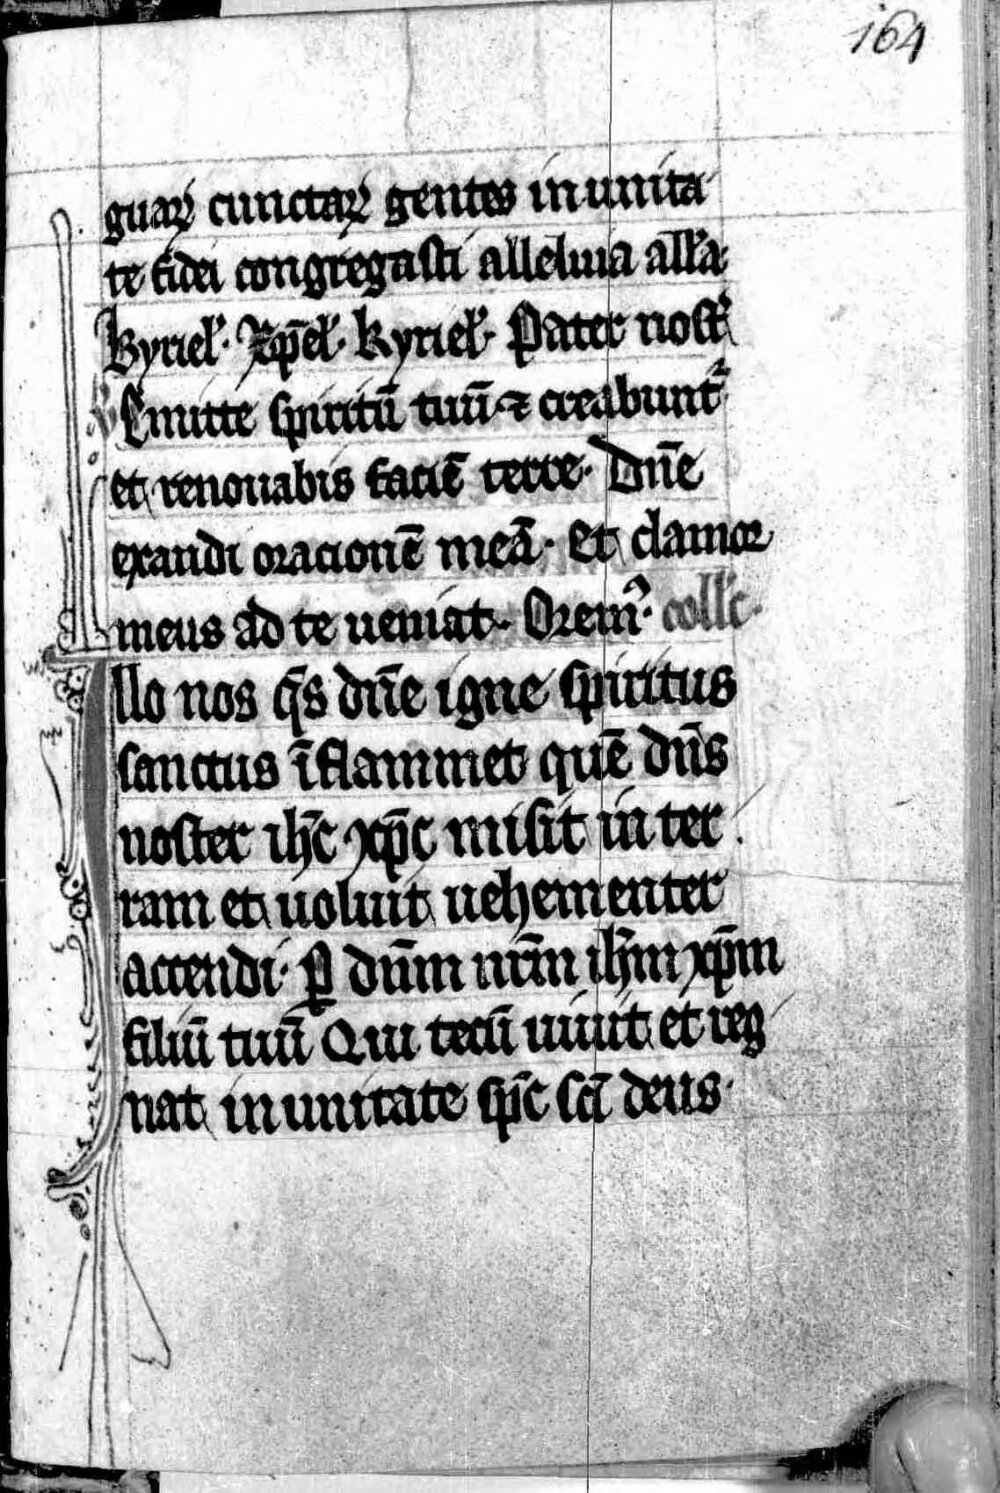 164
guaꝝ cunctaꝝ gentes in unita
te fidei congregasti allēluia all'a
kyriel'. Xp̄el'. kyriel'. Pater nost'
℣ Emitte spiritū tuū ⁊ creabunt᷑
et renouabis faciē terre. Dn̄e
exaudi oracionē meā. Et clamor
meus ad te ueniat. Orem⁹. coll'c.
Illo nos q̄s dn̄e igne spiritus
sanctus īflammet quē dn̄s
noster ih̄c xp̄c misit in ter
ram et uoluit uehementer
accendi. ꝑ dn̄m nr̄m ih̄m xp̄m
filiū tuū Qui tecū uiuit et reg
nat in unitate sp̄c sc̄i deus.